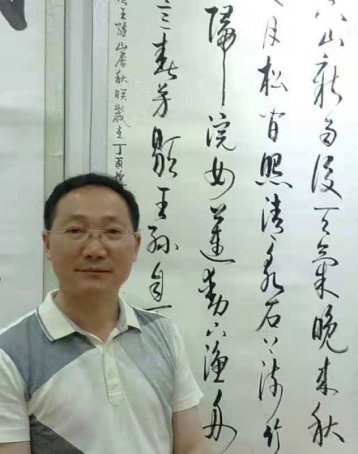 山新雨後天氣晚来秋
月松間照清泉石上流竹
歸浣女蓮動下漁舟
意春芳歇王孫自
王維山居秋暝歲在丁酉